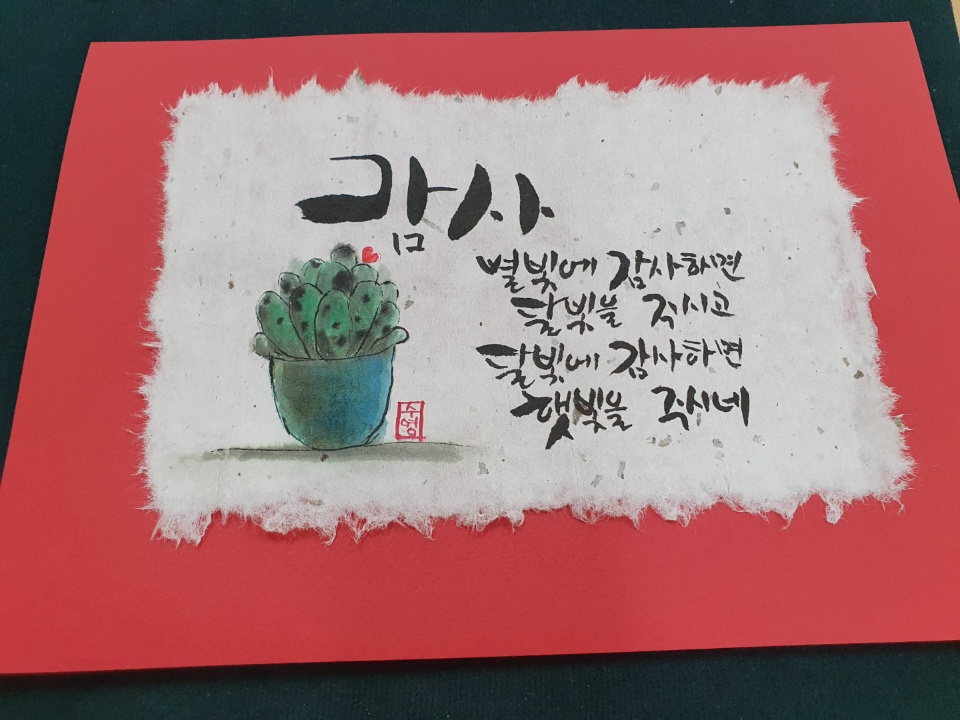 감사
별빛에 감사하면
달빛을 주시고
달빛에 감사하면
햇빛을 주시네
수영